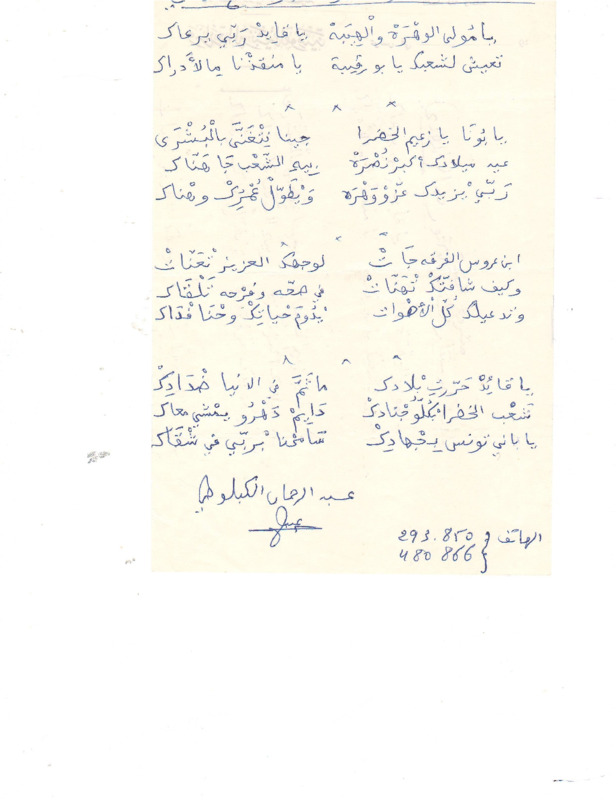 يا مُولى الوهْرَهْ والْهِيبَهْ يا قايدْ رَبّي يرعاك
تعيش لشعبك يا بورقيبة يا منقذْنا مالأَدراك
يا بُونَا يا زعيم الخضرا جينا نِتْغَنَّى بالْبُشْرَى
عيد ميلادك أكبرْ نُصْرَهْ الشَّعْب جَا هَنَّاك
رَبّيْ يزيدك عزّ ووَهْرَه وَيْطَوّلْ عُمْرِكْ وهْناك
ابن عروس الفرقه جَاتْ لوجهك العزيز تْعَنَّاتْ
وكيف شافتكْ تْهَنَّاتْ في صحّه وفَرْحه تَلْقَاك
وندعيلك كُلّ الأصْوات يْدُومْ حياتِكْ وحْنا فْدَاك
يا قائِدْ حَرّرتْ بْلادك ما ثَمَّ في الدنيا ضْدَادِكْ
شعْب الخضرا بْكُلُّو جْنَادِكْ دَايمْ دَهْرُو يمْشي معاك
يا باني تونس بِجْهادِكْ سَامَحْنا بْربّي في شْقَاك
عبد الرحمان الكبلوطي
الهاتف 293.850
480 866